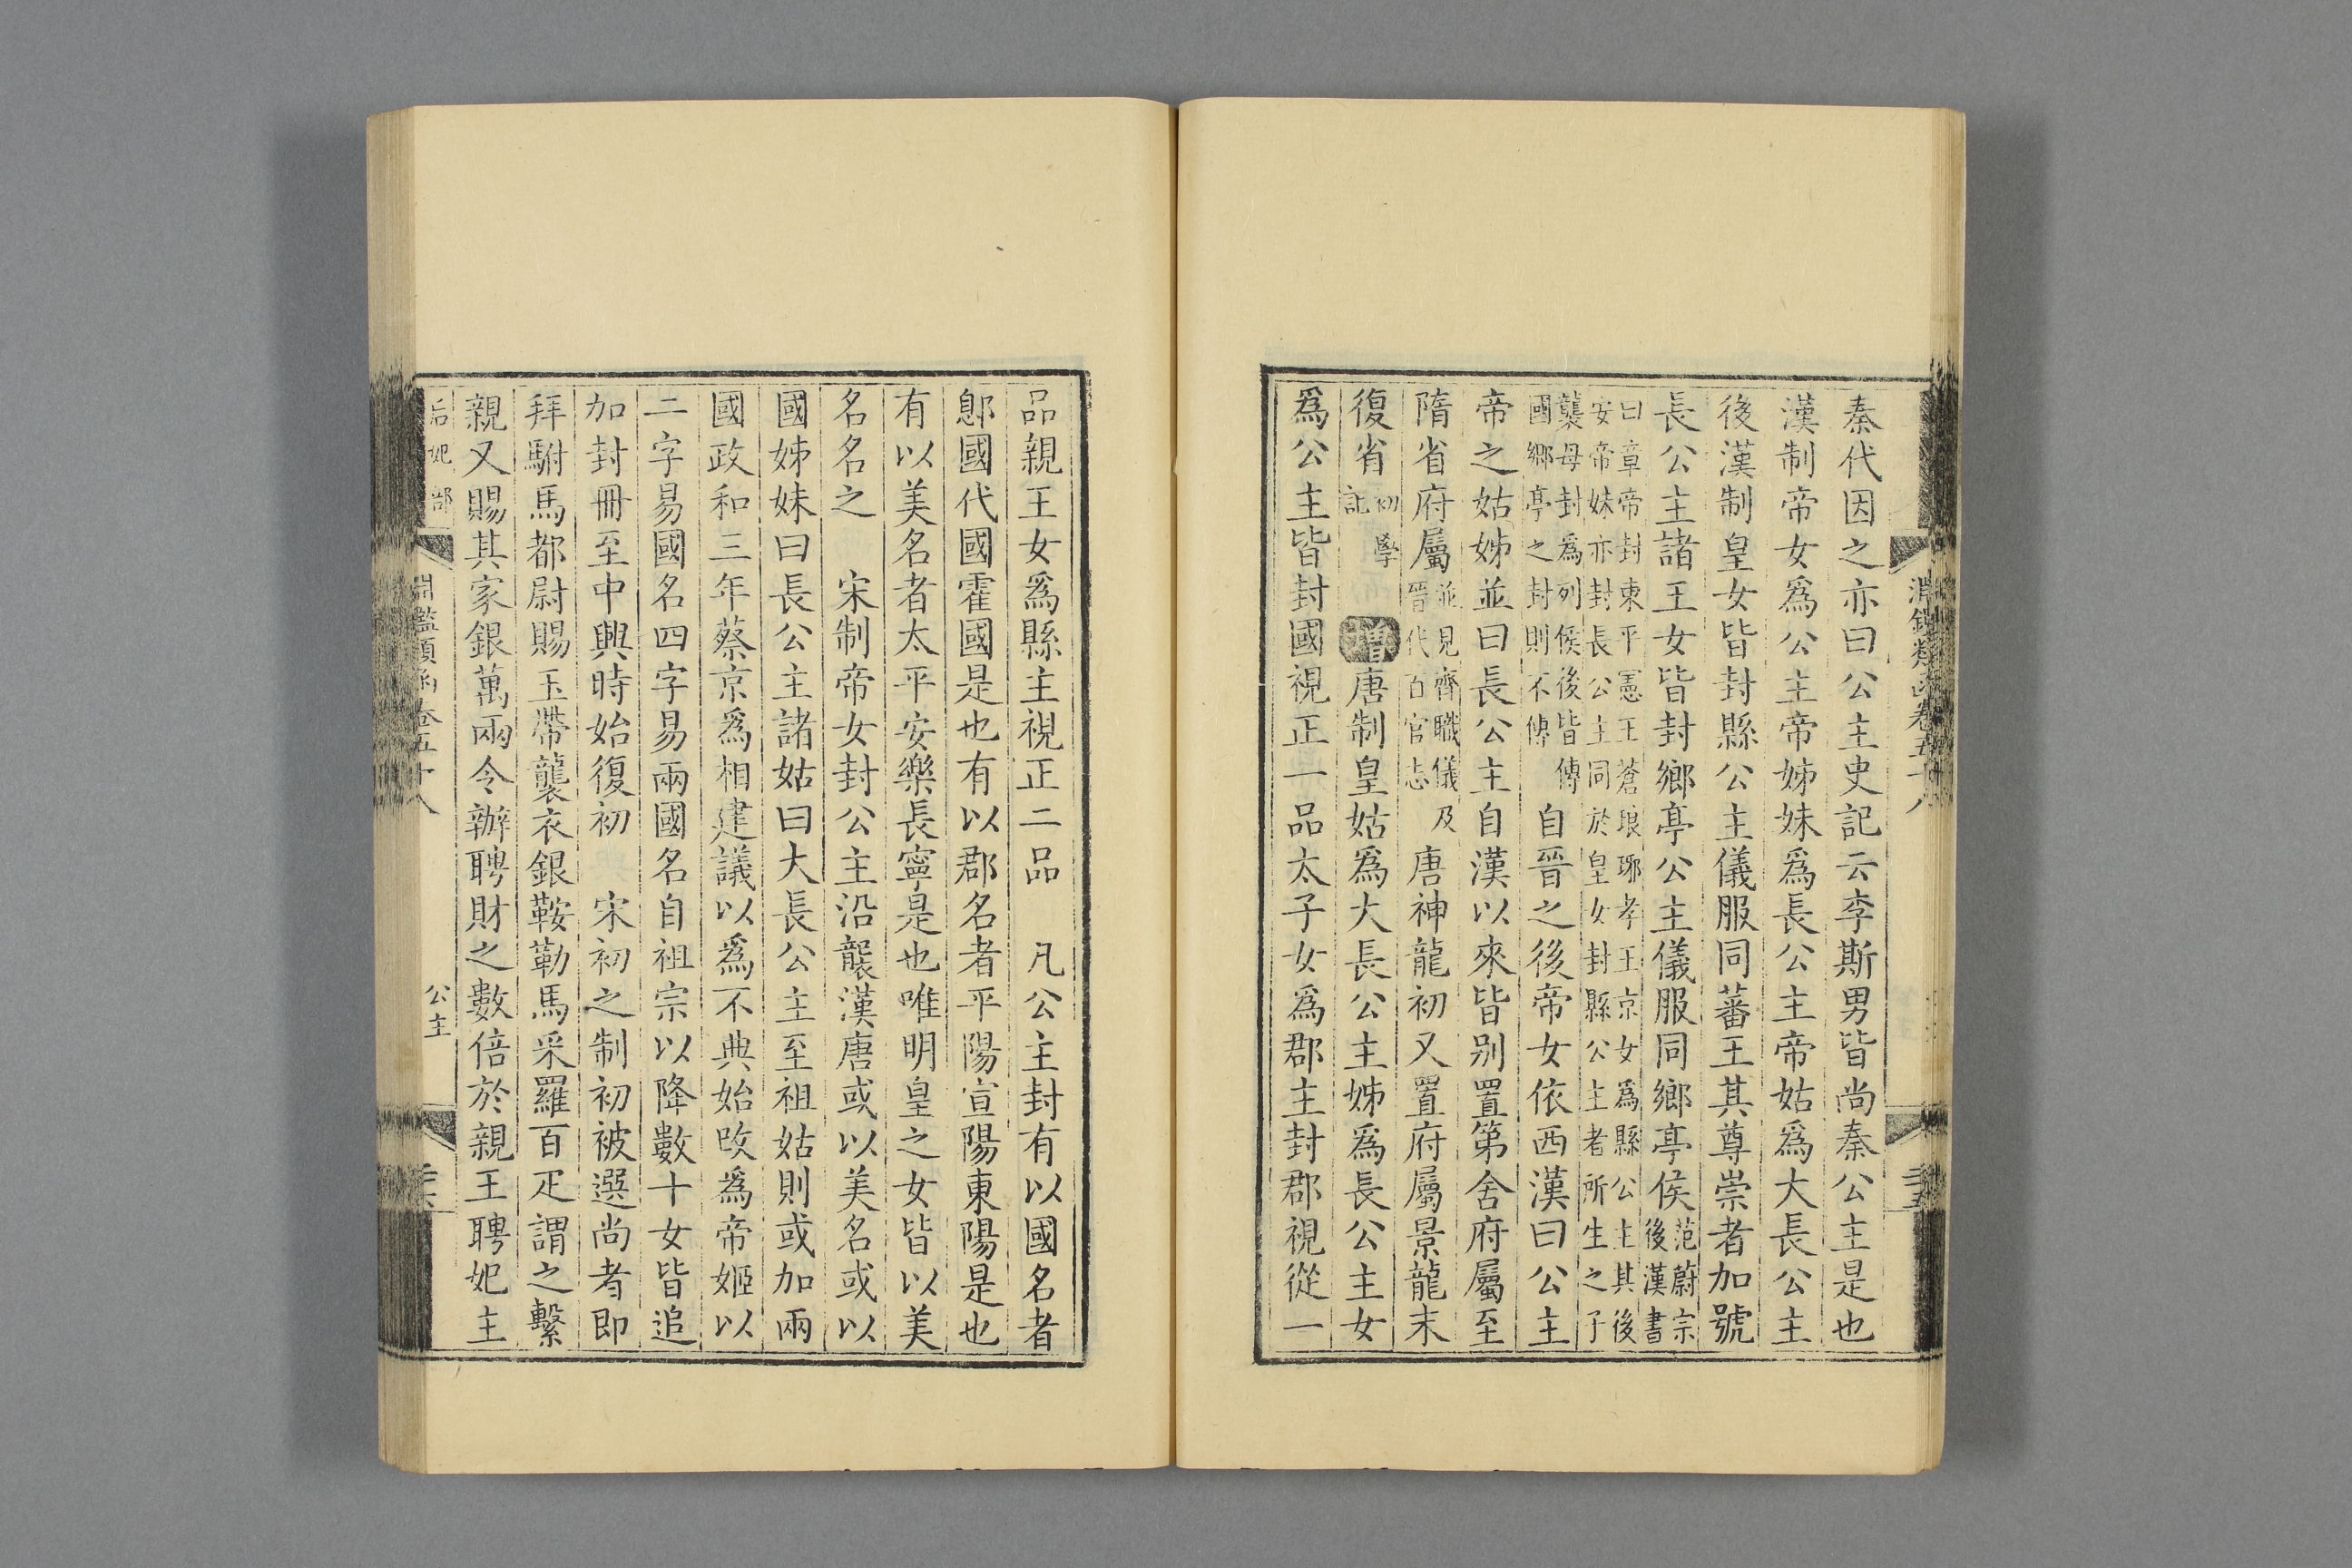 淵鑑類函卷五十八
秦代因之亦曰公主史記云李斯男皆尚秦公主是也
漢制帝女爲公主帝姊妹爲長公主帝姑爲大長公主
後漢制皇女皆封縣公主儀服同蕃王其尊崇者加號
長公主諸王女皆封鄉亭公主儀服同鄉亭侯范蔚宗後漢書
曰章帝封東平憲王蒼琅琊孝王京女爲縣公主其後
安帝妹亦封長公主同於皇女封縣公主者所生之子
襲母封爲列侯後皆傳國鄉亭之封則不傳 自晉之後帝女依西漢曰公主
帝之姑姊並曰長公主自漢以來皆别置第舍府屬至
隋省府屬並見齊職儀及晉代百官志 唐神龍初又置府屬景龍末
復省初學記 增唐制皇姑爲大長公主姊爲長公主女
爲公主皆封國視正一品太子女爲郡主封郡視從一
品親王女爲縣主視正二品 凡公主封有以國名者
鄎國代國霍國是也有以郡名者平陽宣陽東陽是也
有以美名者太平安樂長寧是也唯明皇之女皆以美
名名之 宋制帝女封公主沿襲漢唐或以美名或以
國姊妹曰長公主諸姑曰大長公主至祖姑則或加兩
國政和三年蔡京爲相建議以爲不典始改爲帝姬以
二字易國名四字易兩國名自祖宗以降數十女皆追
加封冊至中興時始復初 宋初之制初被選尚者即
拜駙馬都尉賜玉帶襲衣銀鞍勒馬采羅百疋謂之繫
親又賜其家銀萬兩令辦聘財之數倍於親王聘妃主
后妃部 淵鑑類函卷五十八 公主